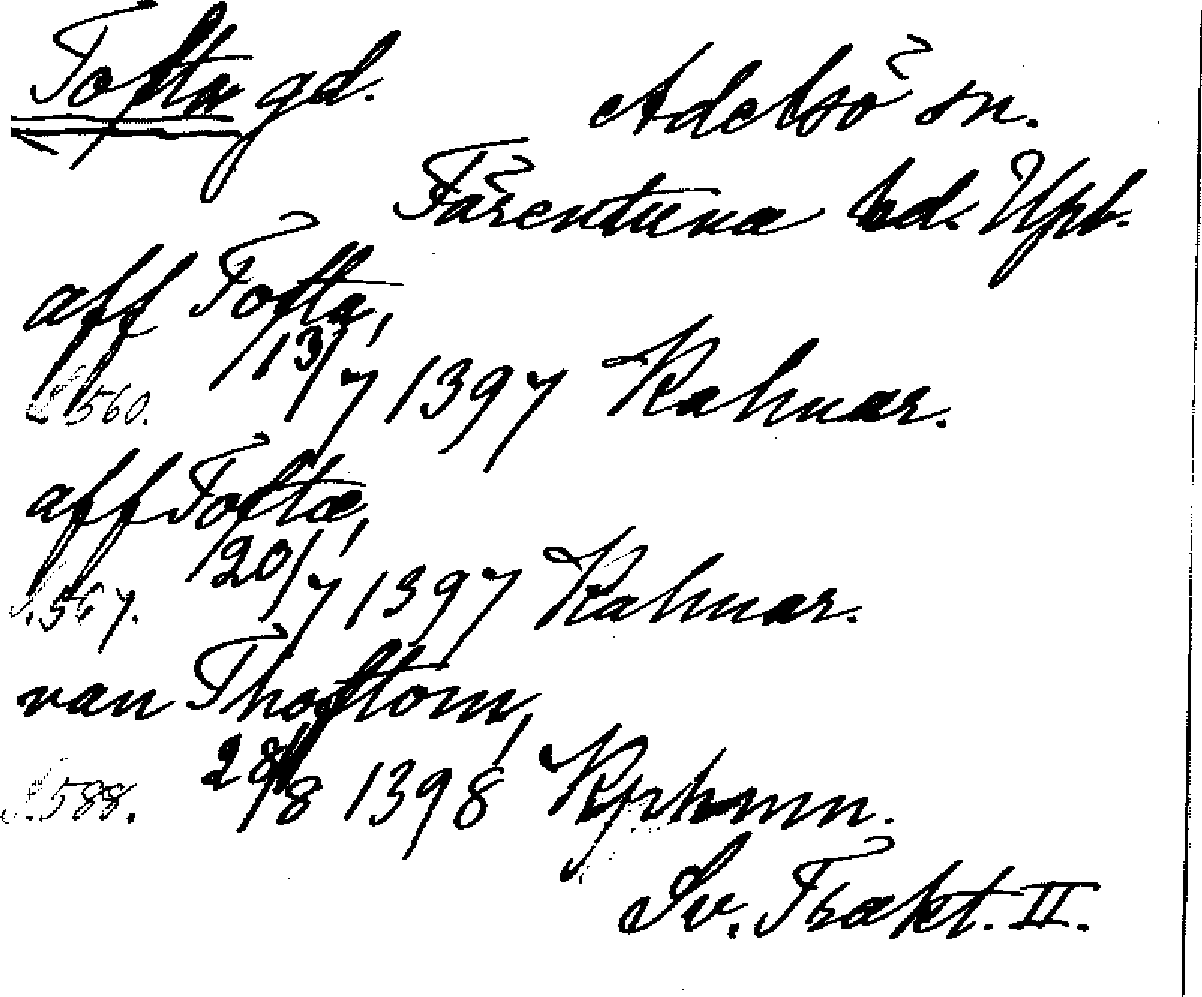 Tofta gd. Adelsö sn.
Färentuna hd. Upl.
aff Tofta,
S. 560. 13/7 1397 Kalmar.
aff Toftæ,
S. 567. 20/7 1397 Kalmar.
van Thoftom,
S. 588. 28/8 1398 Kphmn.
Sv. Trakt. II.